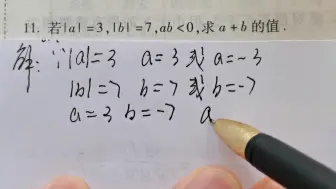 11. 若|a|=3,|b|=7,ab<0,求a+b的值.
解:∵|a|=3 a=3或a=-3
|b|=7 b=7或b=-7
a=3 b=-7 a